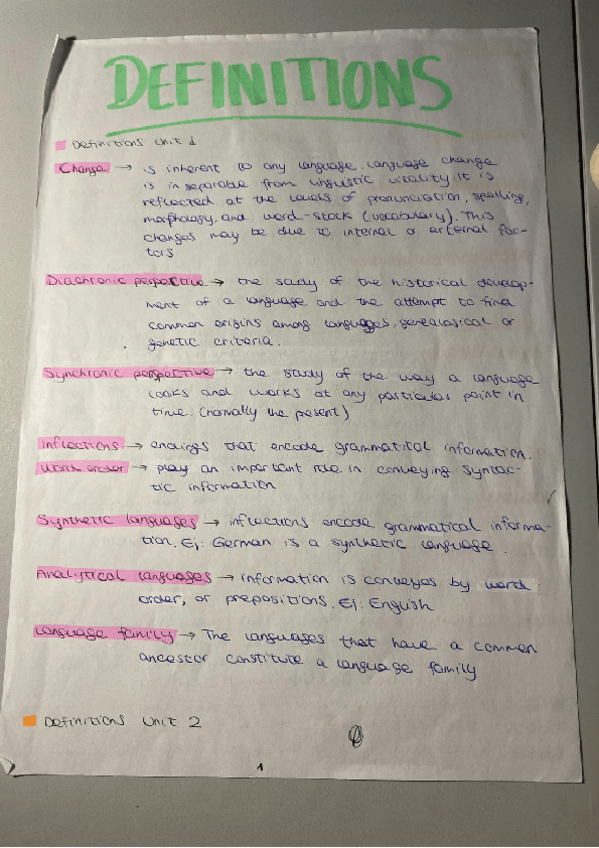 DEFINITIONS
Definitions Unit 1
Change → is inherent to any language. Language change
is inseparable from linguistic vitality. It is
reflected at the levels of pronunciation, spelling,
morphology, and word-stock (vocabulary). This
changes may be due to internal or external fac-
tors
Diachronic perspective → the study of the historical develop-
ment of a language and the attempt to find
common origins among languages, genealogical or
genetic criteria.
Synchronic perspective → the study of the way a language
looks and works at any particular point in
time. (normally the present)
Inflections → endings that encode grammatical information.
Word order → play an important role in conveying syntac-
tic information
Synthetic languages → inflections encode grammatical informa-
tion. Ej: German is a synthetic language.
Analytical languages → information is conveyes by word
order, or prepositions. Ej: English
Language family → The languages that have a common
ancestor constitute a language family
Definitions Unit 2
1